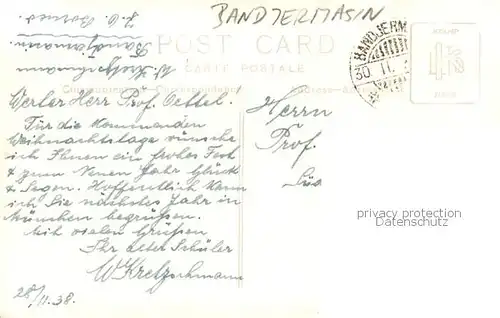 BANDJERMASIN
W. Kretzschmann
Bandjermasin
POST CARD
CARTE POSTALE
BANDJERM
30 11
STAMP
HERE
Werter Herr Prof. Oettel.
Für die kommenden
Weihnachtstage wünsche
ich Ihnen ein frohes Fest
& zum Neuen Jahr Glück
& Segen. Hoffentlich kann
ich Sie nächstes Jahr in
München begrüßen.
Mit vielen Grüßen
Ihr alter Schüler
W Kretzschmann
28/11.38.
Herrn
Prof.
Süd
privacy protection
watermark overlay